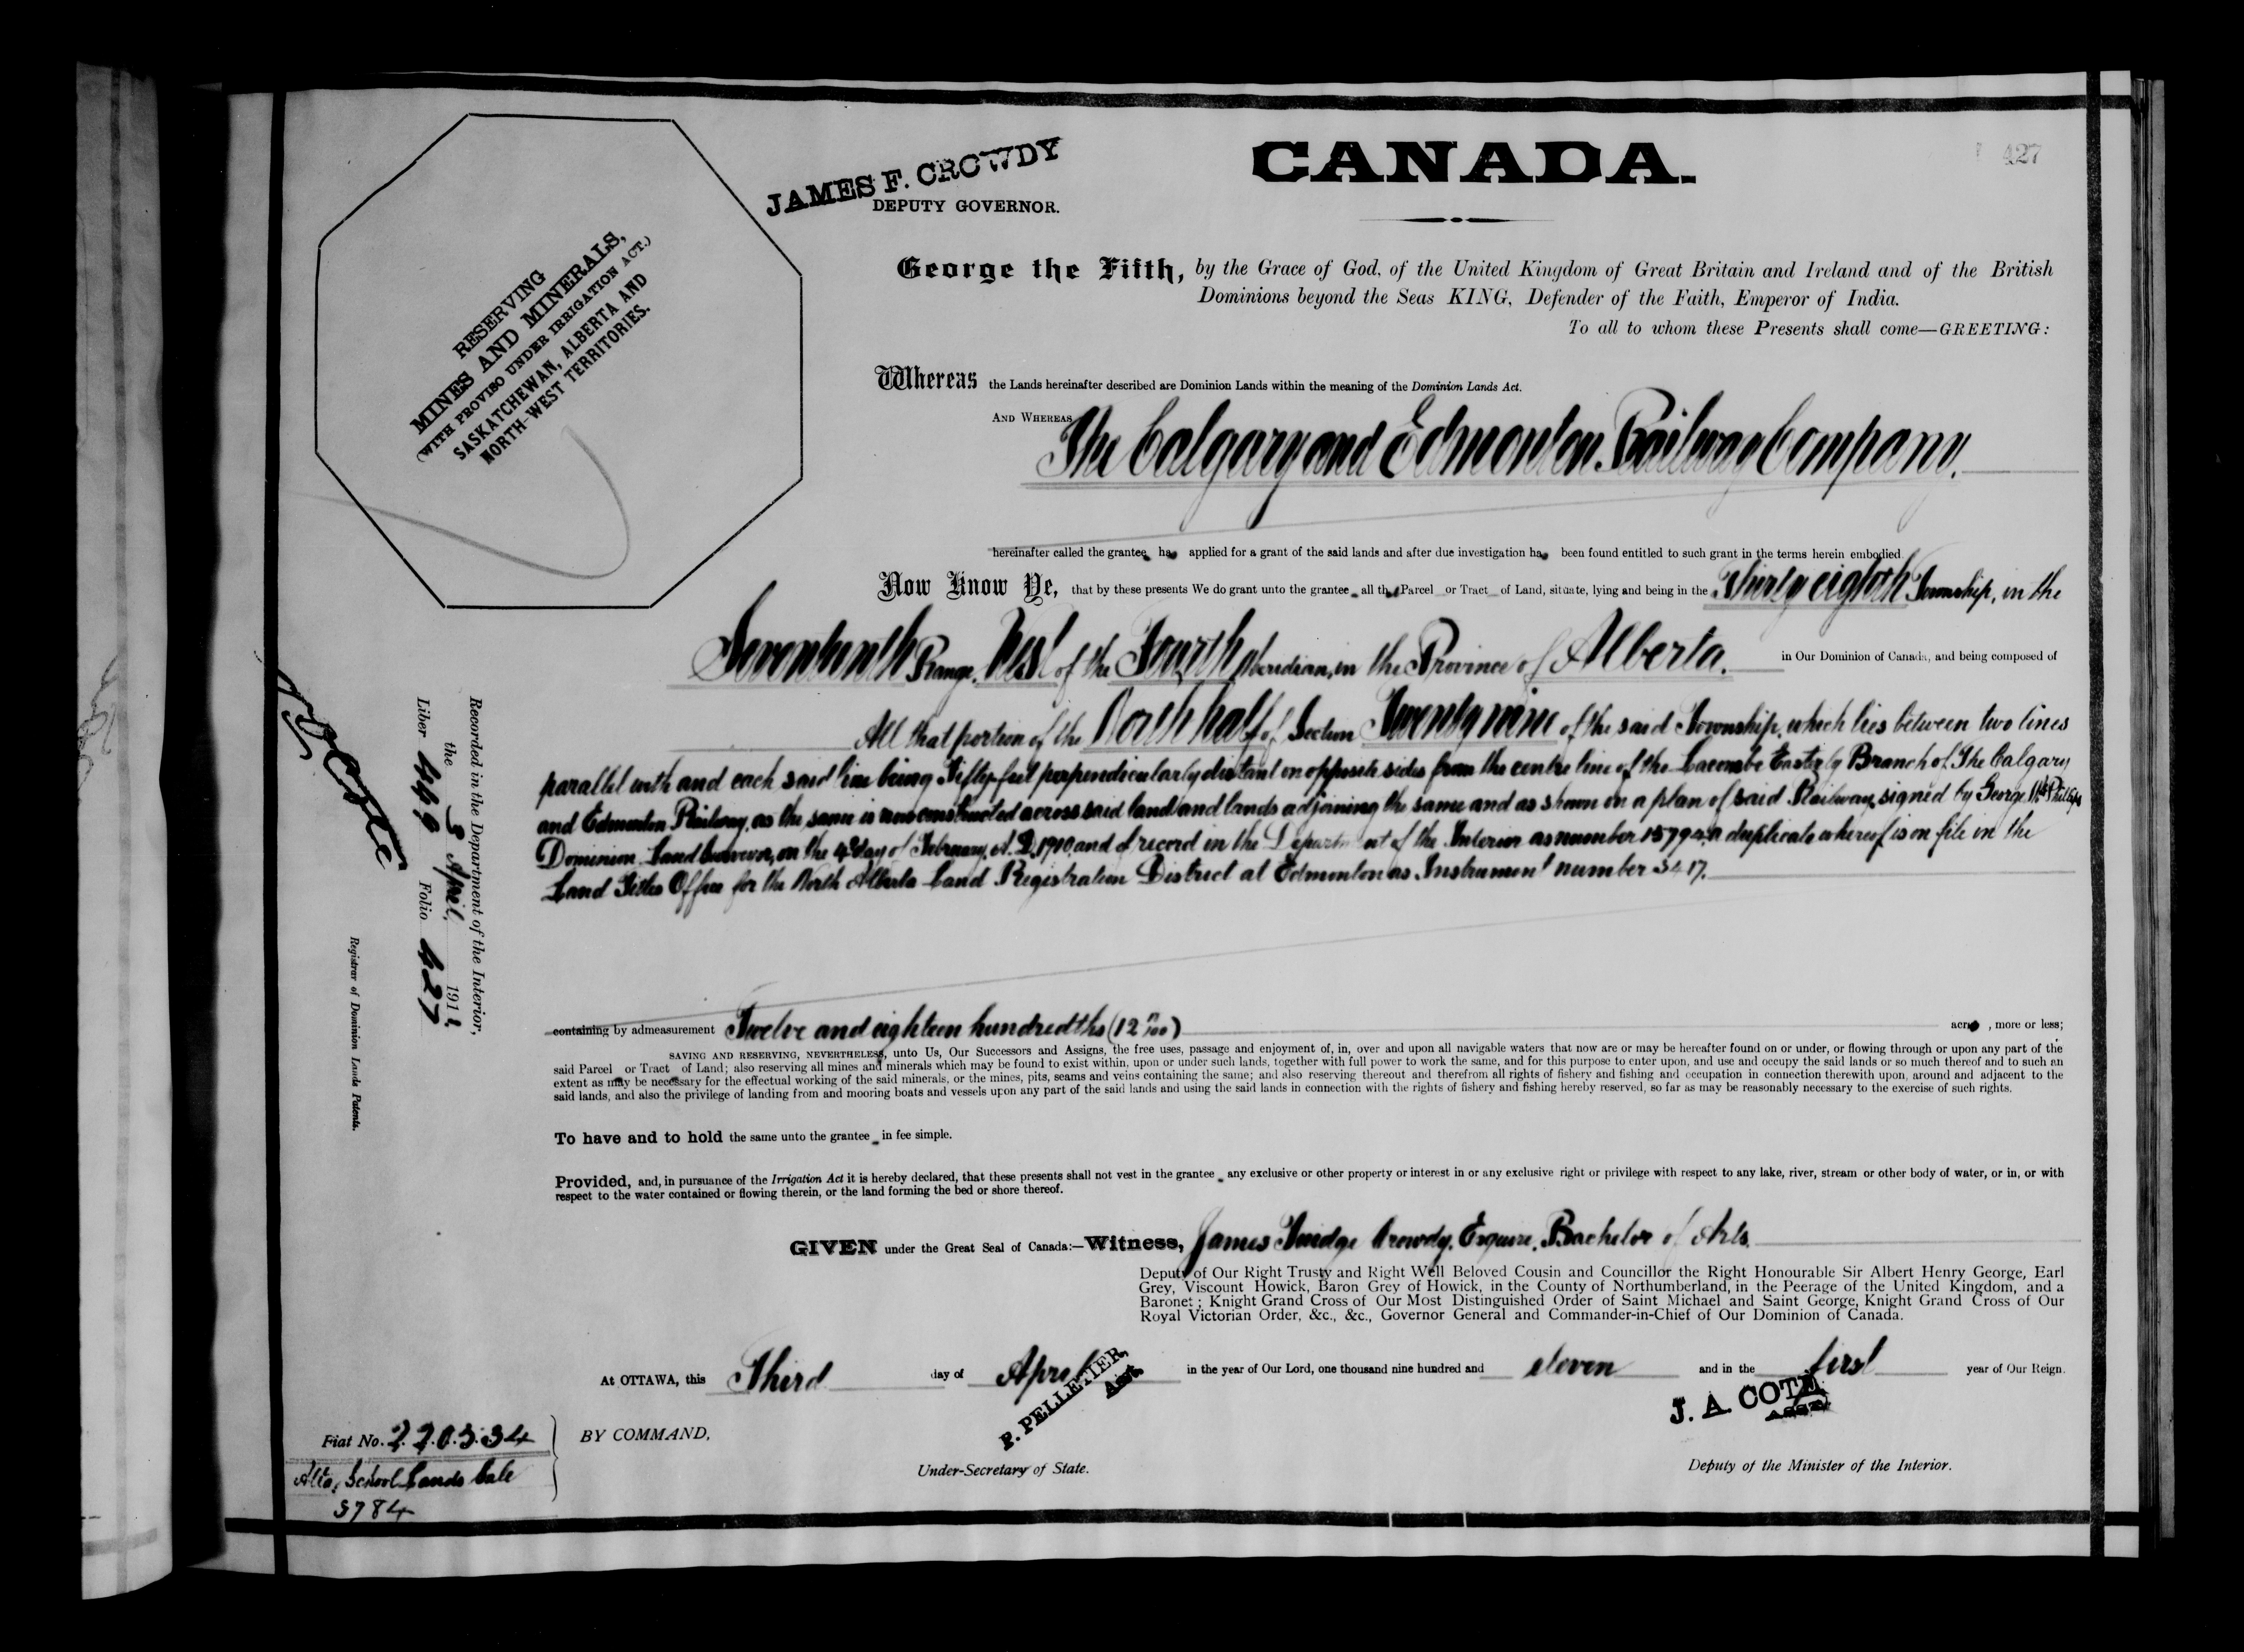 427
CANADA.
JAMES F. CROWDY
DEPUTY GOVERNOR.
RESERVING
MINES AND MINERALS,
(WITH PROVISO UNDER IRRIGATION ACT.)
SASKATCHEWAN, ALBERTA AND
NORTH-WEST TERRITORIES.
George the Fifth, by the Grace of God, of the United Kingdom of Great Britain and Ireland and of the British
Dominions beyond the Seas KING, Defender of the Faith, Emperor of India.
To all to whom these Presents shall come—GREETING:
Whereas the Lands hereinafter described are Dominion Lands within the meaning of the Dominion Lands Act.
AND WHEREAS The Calgary and Edmonton Railway Company.
hereinafter called the grantee has applied for a grant of the said lands and after due investigation has been found entitled to such grant in the terms herein embodied
Now Know Ye, that by these presents We do grant unto the grantee all that Parcel or Tract of Land, situate, lying and being in the Thirty eighth Township, in the
Seventeenth Range, West of the Fourth Meridian, in the Province of Alberta. in Our Dominion of Canada, and being composed of
All that portion of the North half of Section Twenty nine of the said Township, which lies between two lines
parallel with and each said line being Fifty feet perpendicularly distant on opposite sides from the centre line of the Lacombe Easterly Branch of The Calgary
and Edmonton Railway, as the same is now constructed across said land and lands adjoining the same and as shown on a plan of said Railway, signed by George Phillips
Dominion Land Surveyor, on the 4th day of February, A. D. 1910, and of record in the Department of the Interior as number 15794, a duplicate whereof is on file in the
Land Titles Office for the North Alberta Land Registration District at Edmonton as Instrument number 3417.
containing by admeasurement Twelve and eighteen hundredths (12 18/100) acres, more or less;
SAVING AND RESERVING, NEVERTHELESS, unto Us, Our Successors and Assigns, the free uses, passage and enjoyment of, in, over and upon all navigable waters that now are or may be hereafter found on or under, or flowing through or upon any part of the
said Parcel or Tract of Land; also reserving all mines and minerals which may be found to exist within, upon or under such lands, together with full power to work the same, and for this purpose to enter upon, and use and occupy the said lands or so much thereof and to such an
extent as may be necessary for the effectual working of the said minerals, or the mines, pits, seams and veins containing the same; and also reserving thereout and therefrom all rights of fishery and fishing and occupation in connection therewith upon, around and adjacent to the
said lands, and also the privilege of landing from and mooring boats and vessels upon any part of the said lands and using the said lands in connection with the rights of fishery and fishing hereby reserved, so far as may be reasonably necessary to the exercise of such rights.
To have and to hold the same unto the grantee in fee simple.
Provided, and, in pursuance of the Irrigation Act it is hereby declared, that these presents shall not vest in the grantee any exclusive or other property or interest in or any exclusive right or privilege with respect to any lake, river, stream or other body of water, or in, or with
respect to the water contained or flowing therein, or the land forming the bed or shore thereof.
GIVEN under the Great Seal of Canada:—Witness, James Fuidge Crowdy, Esquire, Bachelor of Arts.
Deputy of Our Right Trusty and Right Well Beloved Cousin and Councillor the Right Honourable Sir Albert Henry George, Earl
Grey, Viscount Howick, Baron Grey of Howick, in the County of Northumberland, in the Peerage of the United Kingdom, and a
Baronet; Knight Grand Cross of Our Most Distinguished Order of Saint Michael and Saint George, Knight Grand Cross of Our
Royal Victorian Order, &c., &c., Governor General and Commander-in-Chief of Our Dominion of Canada.
At OTTAWA, this Third day of April in the year of Our Lord, one thousand nine hundred and eleven and in the first year of Our Reign.
BY COMMAND,
P. PELLETIER,
Asst.
Under-Secretary of State.
J. A. COTE,
ASST.
Deputy of the Minister of the Interior.
Fiat No. 220334
Alta, School Lands Sale
3784
Recorded in the Department of the Interior,
the 3 April, 1911,
Liber Folio 427
Registrar of Dominion Lands Patents.